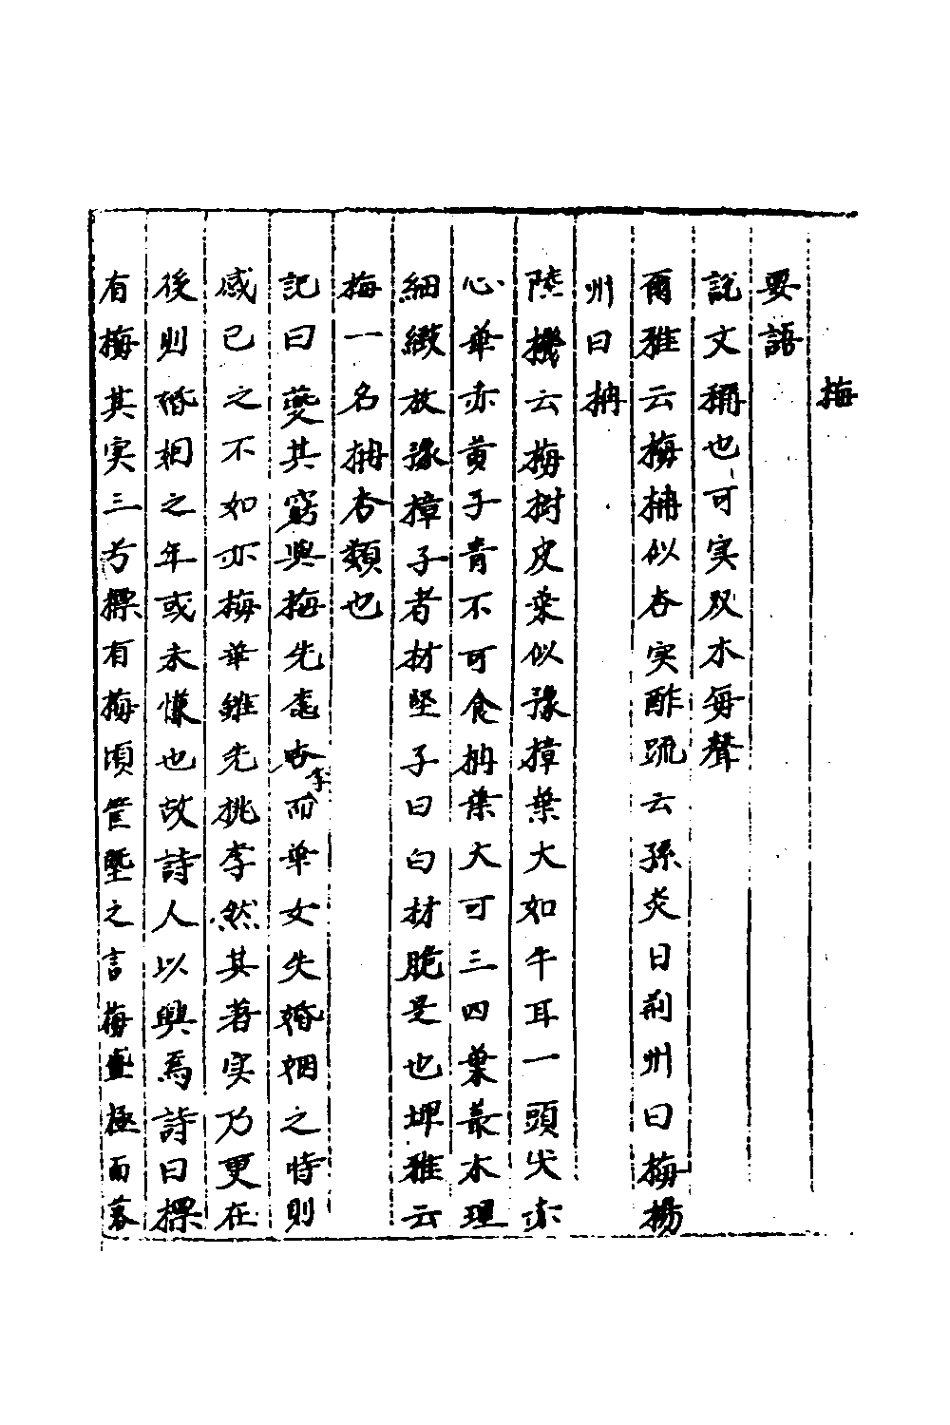 梅
要語
說文稱也可実双木每聲
爾雅云梅枏似杏実酢䟽云孫炎曰荊州曰梅楊
州曰枏
陸機云梅樹皮葉似豫樟葉大如牛耳一頭尖赤
心華赤黄子青不可食枏葉大可三四葉叢木理
細緻於豫樟子者材堅子曰白材脆是也埤雅云
梅一名枏杏類也
記曰夔其窮與梅先杏李而華女失婚姻之時則
感已之不如亦梅華雖先桃李然其著実乃更在
後則婚姻之年或未慊也故詩人以興焉詩曰摽
有梅其実三兮摽有梅頃筐墍之言梅盡極而落